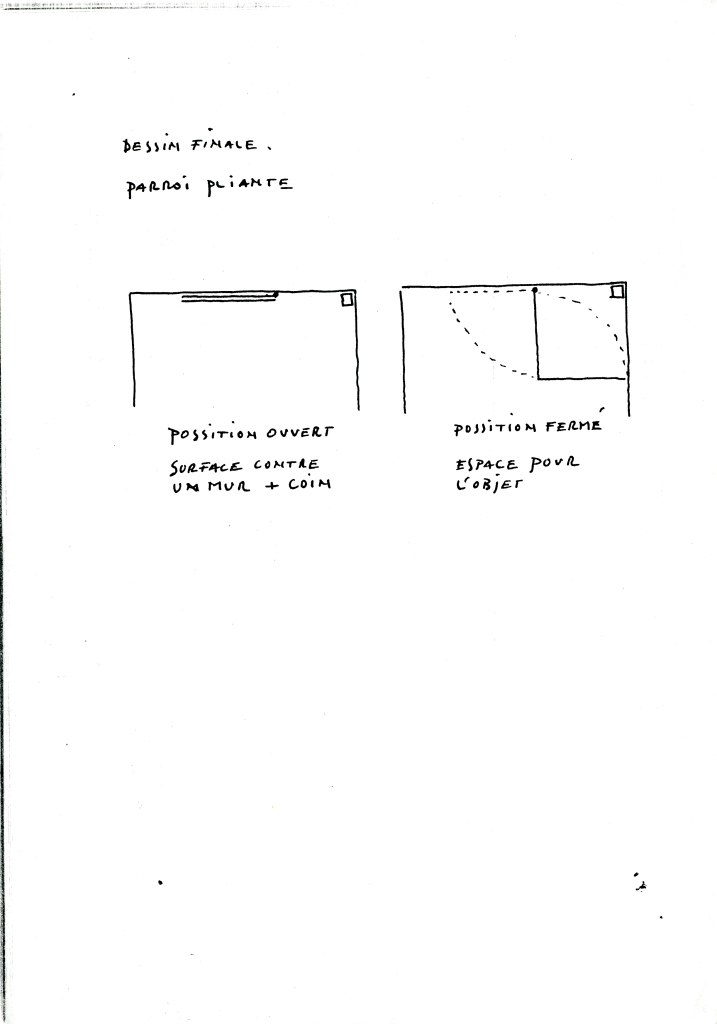 DESSIN FINALE.
PARROI PLIANTE
POSSITION OUVERT
SURFACE CONTRE
UN MUR + COIN
POSSITION FERMÉ
ESPACE POUR
L'OBJET